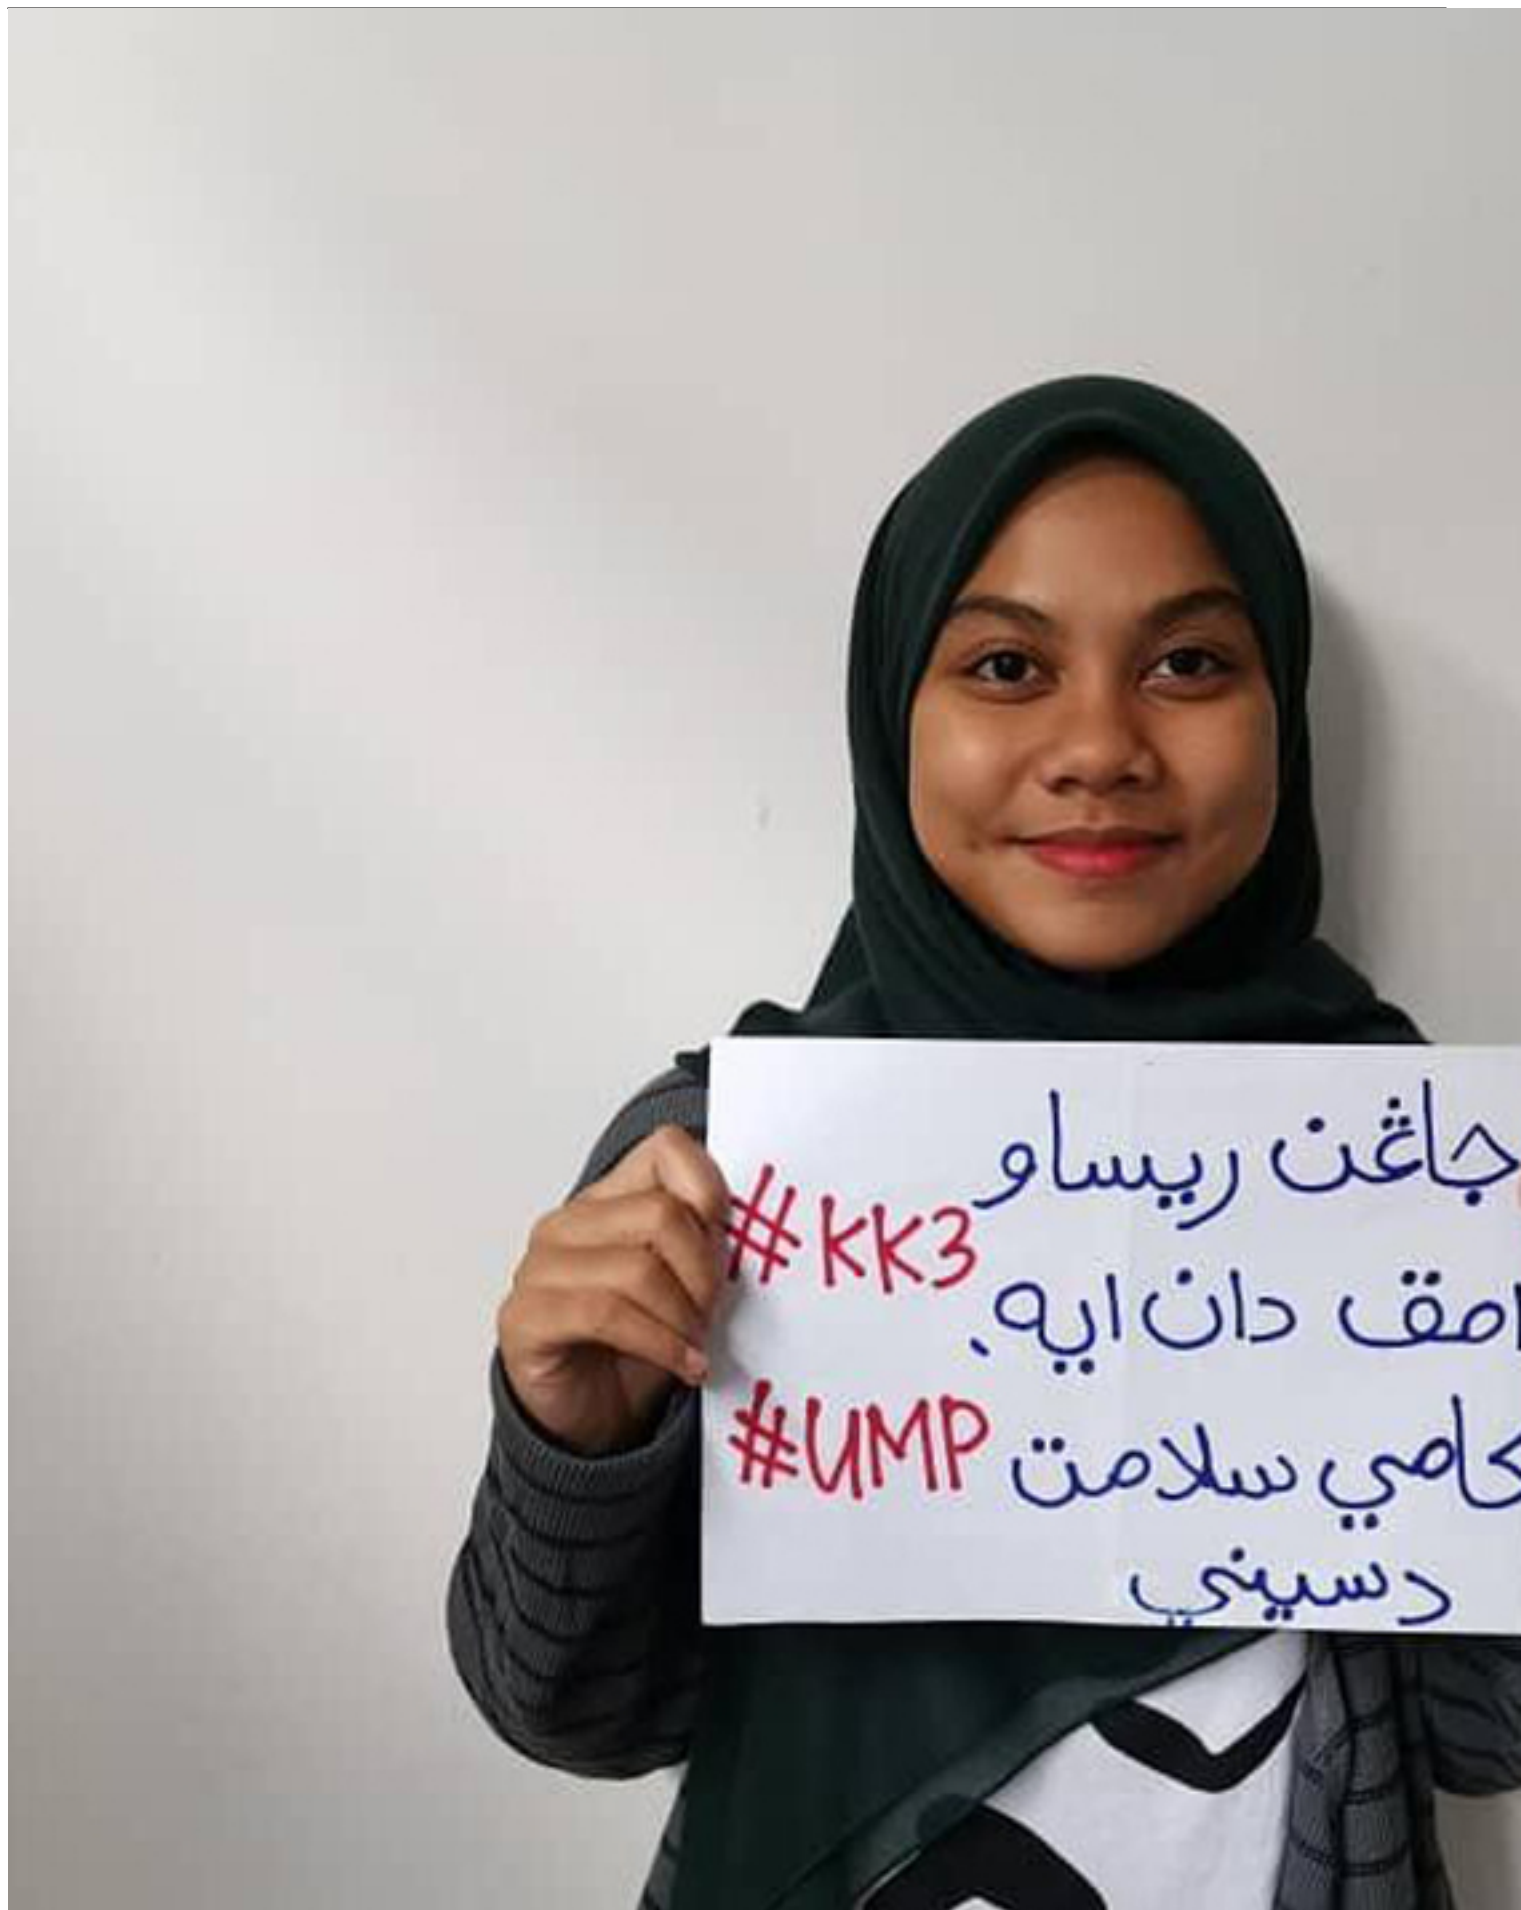 جاڠن ريساو
#KK3
امق دان ايه.
كامي سلامت
#UMP
دسيني